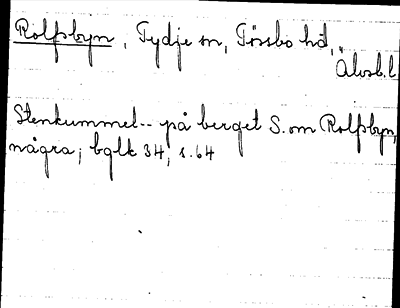 Rolfsbyn, Tydje sn, Tössbo hd,
Älvsb.l
Stenkummel-- på berget S. om Rolfsbyn,
några; bglk 34, s. 64